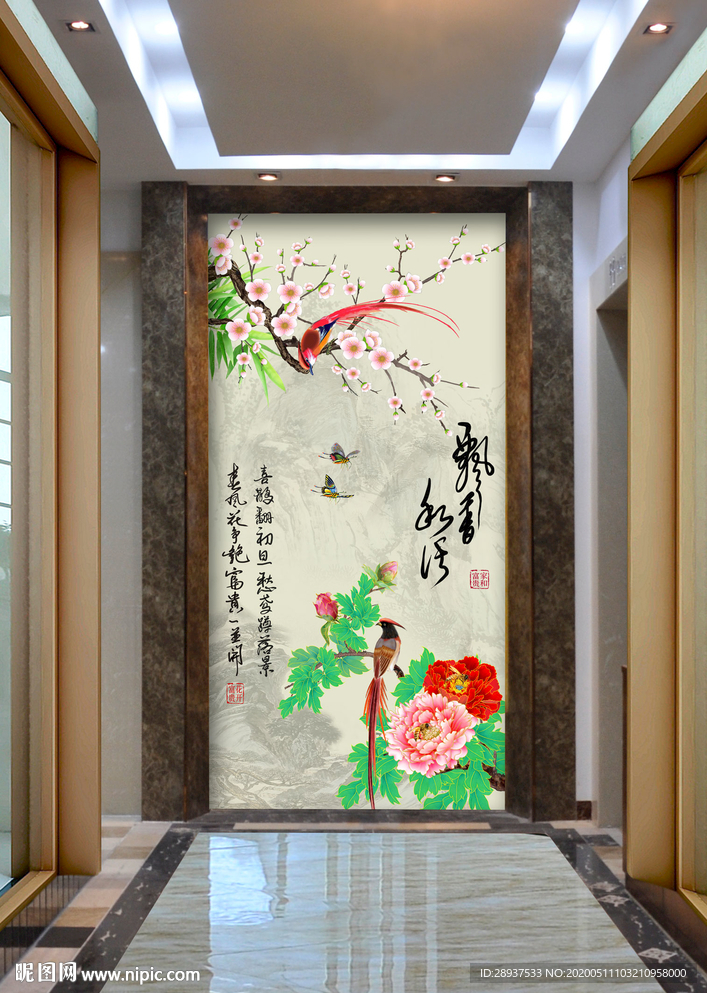 飘香
喜鹊翻初旦愁鸢蹲落景
春风花争艳富贵一并开
家和富贵
花开富贵
昵图网 www.nipic.com
ID:28937533 NO:20200511103210958000